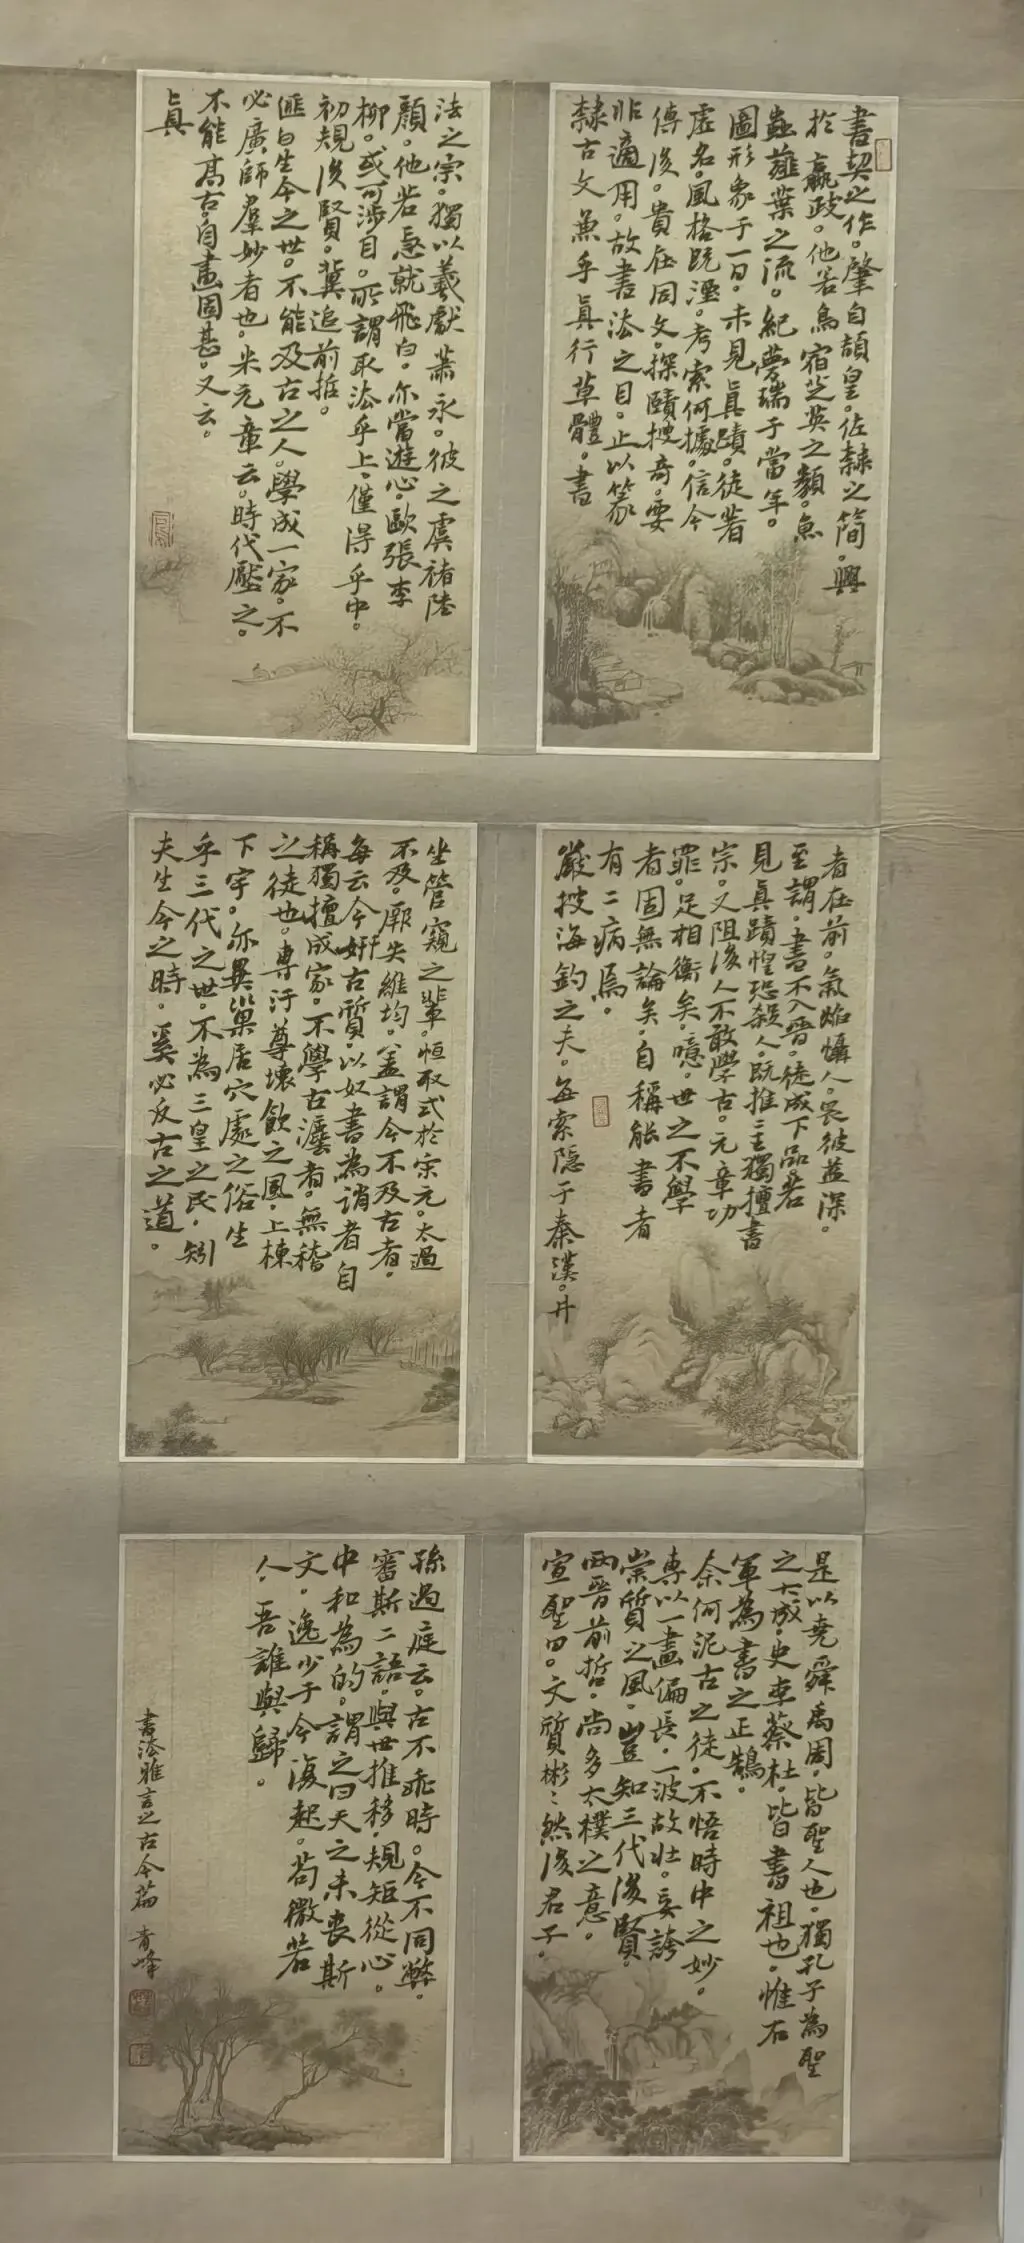 書契之作。肇自頡皇。佐隸之簡。興
於嬴政。他若鳥宿芝英之類。魚
蟲薤葉之流。紀夢瑞于當年。
圖形象于一日。未見真蹟。徒著
虛名。風格既湮。考索何據。信今
傳後。貴在同文。探賾搜奇。要
非適用。故書法之目。止以篆
隸古文兼乎真行草體。書
法之宗。獨以羲獻蕭永。彼之虞褚陸
顏。他若急就飛白。亦當遊心。歐張李
柳。或可涉目。所謂取法乎上。僅得乎中。
初規後賢。冀追前哲。
匪曰生今之世。不能及古之人。學成一家。不
必廣師羣妙者也。米元章云。時代壓之。
不能高古。自畫固甚。又云。
真
者在前。氣焰懾人。畏彼益深。
至謂。書不入晉。徒成下品。若
見真蹟。惶恐殺人。既推二王獨擅書
宗。又阻後人不敢學古。元章功
罪。足相衡矣。噫。世之不學
者固無論矣。自稱能書者
有二病焉。
巖搜海釣之夫。每索隱于秦漢。井
坐管窺之輩。恒取式於宋元。太過
不及。厥失維均。蓋謂今不及古者。
每云今妍古質。以奴書為誚者。自
稱獨擅成家。不學古法者。無稽
之徒也。專汙尊壞飲之風。上棟
下宇。亦異巢居穴處之俗。生
乎三代之世。不為三皇之民。矧
夫生今之時。奚必反古之道。
是以堯舜禹周。皆聖人也。獨孔子為聖
之大成。史李蔡杜。皆書祖也。惟右
軍為書之正鵠。
奈何泥古之徒。不悟時中之妙。
專以一畫偏長。一波故壯。妄誇
崇質之風。豈知三代後賢。
兩晉前哲。尚多太樸之意。
宣聖曰。文質彬彬。然後君子。
孫過庭云。古不乖時。今不同弊。
審斯二語。與世推移。規矩從心。
中和為的。謂之曰天之未喪斯
文。逸少于今復起。苟微若
人。吾誰與歸。
書法雅言之古今篇 青峰